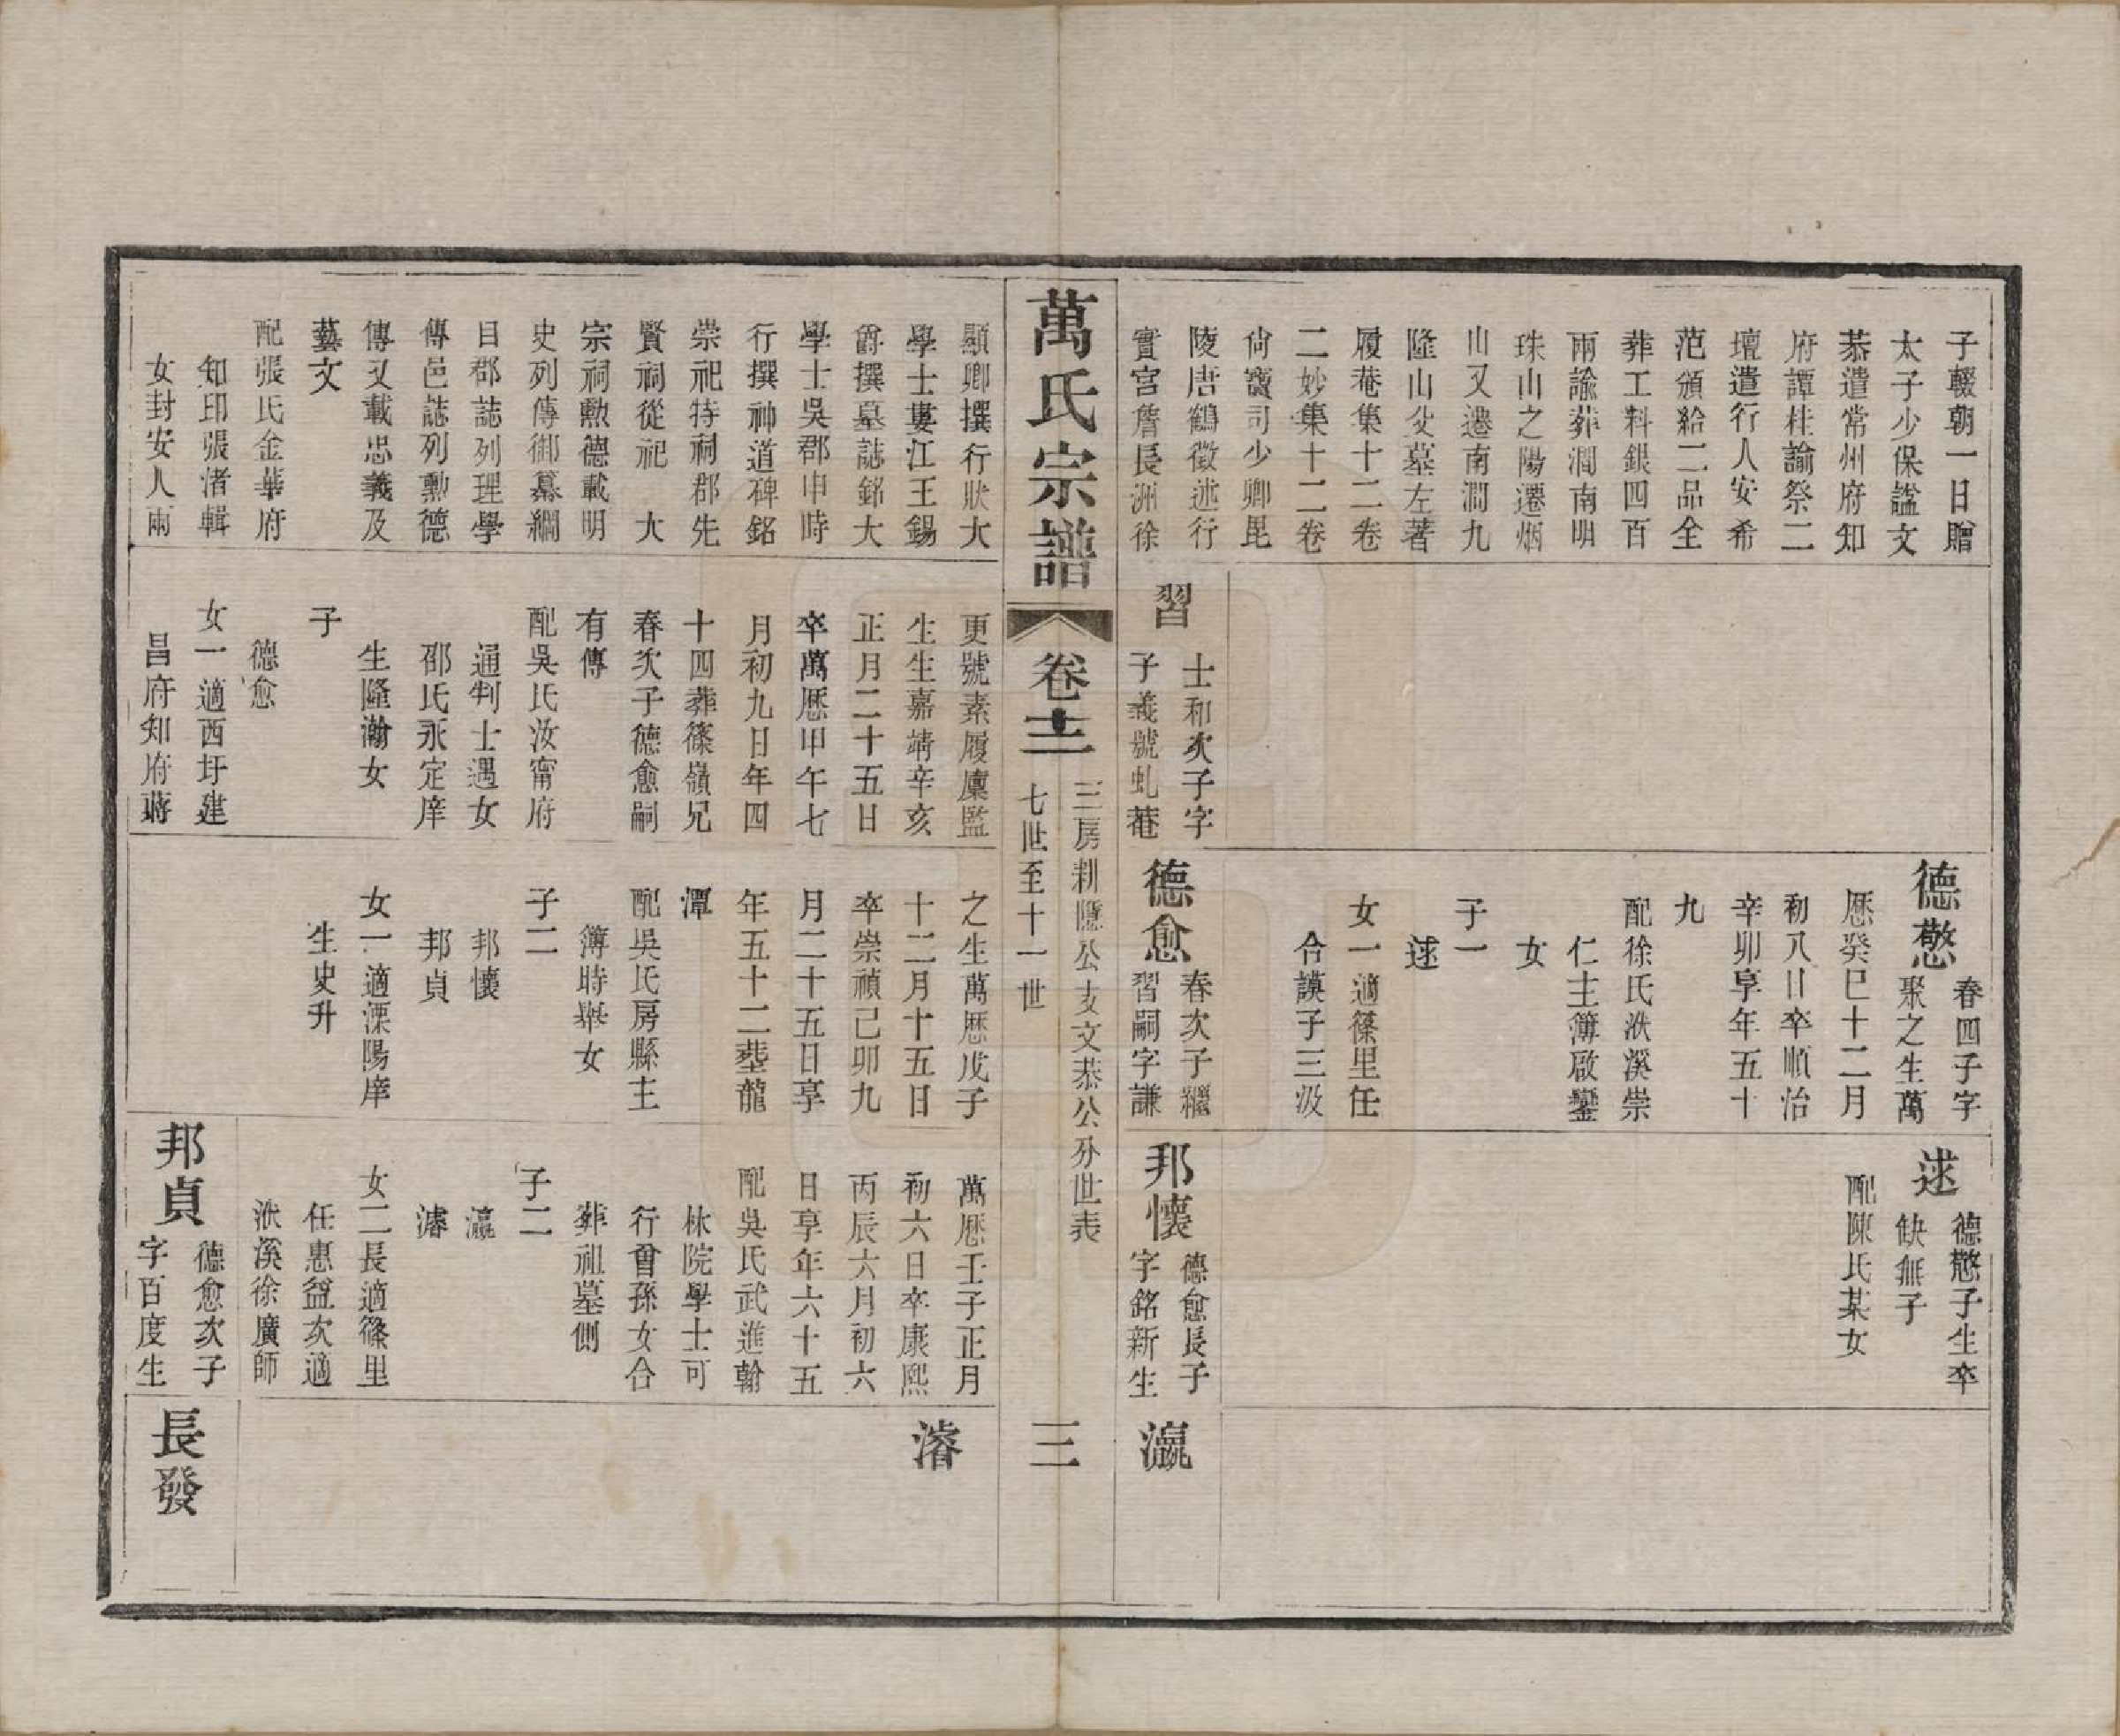 子輟朝一日贈
太子少保諡文
恭遣常州府知
府譚桂諭祭二
壇遣行人安希
范頒給二品全
葬工料銀四百
兩諭葬澗南明
珠山之陽遷烟
山又遷南澗九
隆山父墓左著
履菴集十二卷
二妙集十二卷
尙寶司少卿毘
陵唐鶴徵述行
實宮詹長洲徐
習
士和次子字
子義號虬菴
德憗
春四子字
聚之生萬
歷癸巳十二月
初八日卒順治
辛卯享年五十
九
配徐氏洑溪崇
仁主簿啟鑾
女
子一
逑
女一適篠里任
合謨子三汲
德愈
春次子繼
習嗣字謙
逑
德憗子生卒
缺無子
配陳氏某女
邦懷
德愈長子
字銘新生
瀛
萬氏宗譜
卷十二
三房耕隱公支文恭公分世表
七世至十一世
三
顯卿撰行狀大
學士婁江王錫
爵撰墓誌銘大
學士吳郡申時
行撰神道碑銘
崇祀特祠郡先
賢祠從祀 大
宗祠勲德載明
史列傳御纂綱
目郡誌列理學
傳邑誌列勲德
傳又載忠義及
藝文
配張氏金華府
知印張渚輯
女封安人兩
更號素履廩監
生生嘉靖辛亥
正月二十五日
卒萬歷甲午七
月初九日年四
十四葬篠嶺兄
春次子德愈嗣
有傳
配吳氏汝甯府
通判士遇女
邵氏永定庠
生隆瀚女
子
德愈
女一適西圩建
昌府知府蔣
之生萬歷戊子
十二月十五日
卒崇禎己卯九
月二十五日享
年五十二塟龍
潭
配吳氏房縣主
簿時舉女
子二
邦懷
邦貞
女一適溧陽庠
生史升
萬歷壬子正月
初六日卒康熙
丙辰六月初六
日享年六十五
配吳氏武進翰
林院學士可
行曾孫女合
葬祖墓側
子二
瀛
濬
女二長適篠里
任惠益次適
洑溪徐廣師
邦貞
德愈次子
字百度生
濬
長發